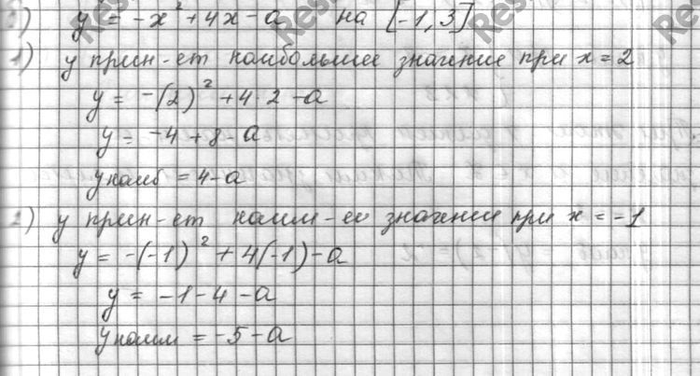 y = -x² + 4x - a на [-1, 3]
1) y прин-ет наибольшее значение при x = 2
y = -(2)² + 4·2 - a
y = -4 + 8 - a
y наиб = 4 - a
2) y прин-ет наим-ее значение при x = -1
y = -(-1)² + 4(-1) - a
y = -1 - 4 - a
y наим = -5 - a